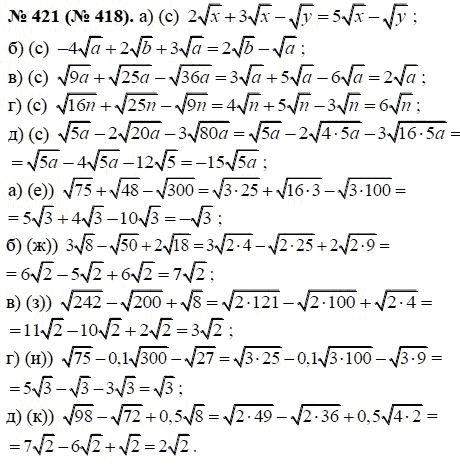 № 421 (№ 418). а) (с) 2√x + 3√x − √y = 5√x − √y ;
б) (с) −4√a + 2√b + 3√a = 2√b − √a ;
в) (с) √9a + √25a − √36a = 3√a + 5√a − 6√a = 2√a ;
г) (с) √16n + √25n − √9n = 4√n + 5√n − 3√n = 6√n ;
д) (с) √5a − 2√20a − 3√80a = √5a − 2√4·5a − 3√16·5a =
= √5a − 4√5a − 12√5 = −15√5a ;
а) (е)) √75 + √48 − √300 = √3·25 + √16·3 − √3·100 =
= 5√3 + 4√3 − 10√3 = −√3 ;
б) (ж)) 3√8 − √50 + 2√18 = 3√2·4 − √2·25 + 2√2·9 =
= 6√2 − 5√2 + 6√2 = 7√2 ;
в) (з)) √242 − √200 + √8 = √2·121 − √2·100 + √2·4 =
= 11√2 − 10√2 + 2√2 = 3√2 ;
г) (и)) √75 − 0,1√300 − √27 = √3·25 − 0,1√3·100 − √3·9 =
= 5√3 − √3 − 3√3 = √3 ;
д) (к)) √98 − √72 + 0,5√8 = √2·49 − √2·36 + 0,5√4·2 =
= 7√2 − 6√2 + √2 = 2√2 .